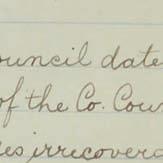 ouncil date
of the Co. Coun
es irrecovera